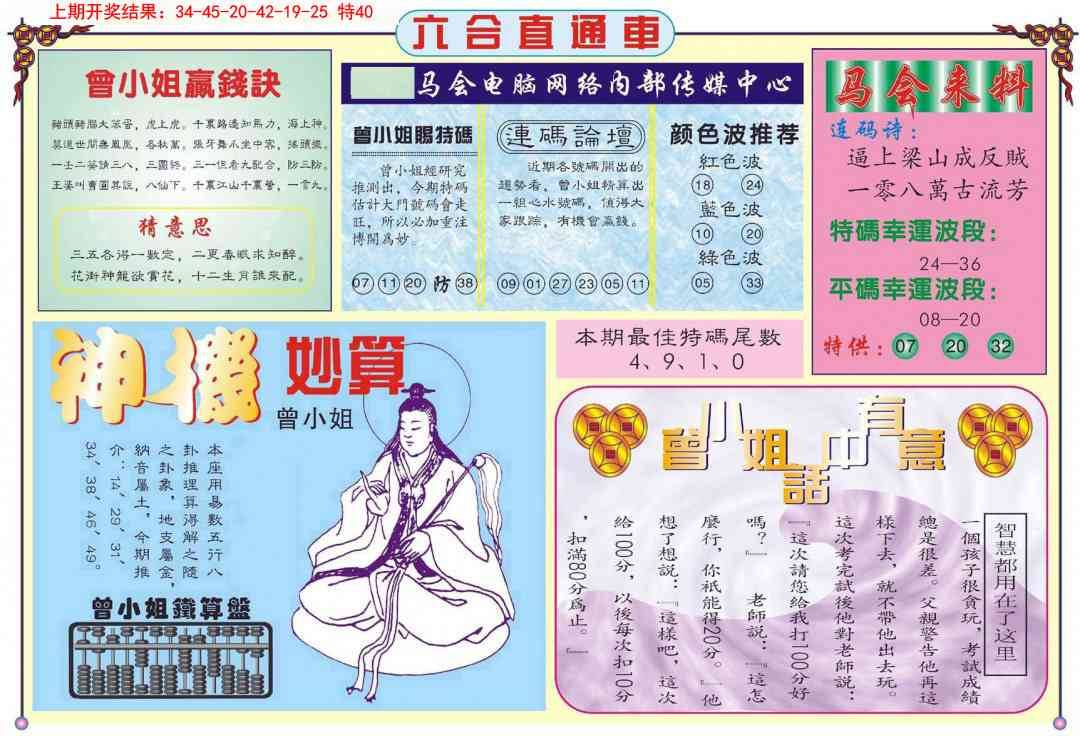 上期开奖结果：34-45-20-42-19-25 特40
六合直通車
曾小姐贏錢訣
猜意思
三五各得一數定，二更春眠求知醉。
花街神龍欲賞花，十二生月誰來配。
马会电脑网络内部传媒中心
曾小姐賜特碼
曾小姐經研究
推測出，今期特碼
估計大門號碼會走
旺，所以必加重注
博開為妙。
07 11 20 防 38
連碼論壇
近期各號碼開出的
趨勢看，曾小姐精算出
一組心水號碼，值得大
家跟踪，有機會贏錢。
09 01 27 23 05 11
颜色波推荐
紅色波
18 24
藍色波
10 20
綠色波
05 33
马会来料
连码诗：
逼上梁山成反賊
一零八萬古流芳
特碼幸運波段：
24—36
平碼幸運波段：
08—20
特供：07 20 32
神機
妙算
曾小姐
本座用易數五行八
卦推理算得解之隨
之卦象，地支屬金，
納音屬土，今期推
介：14、29、31、
34、38、46、49。
曾小姐鐵算盤
本期最佳特碼尾數
4、9、1、0
曾小姐話中有意
智慧都用在了这里
一個孩子很貪玩，考試成績
總是很差。父親警告他再這
樣下去，就不帶他出去玩。
這次考完試後他對老師說：
『這次請您給我打100分好
嗎？』 老師說：『這怎
麼行，你衹能得20分。』他
想了想說：『這樣吧，這次
給100分，以後每次扣10分
，扣滿80分為止。』